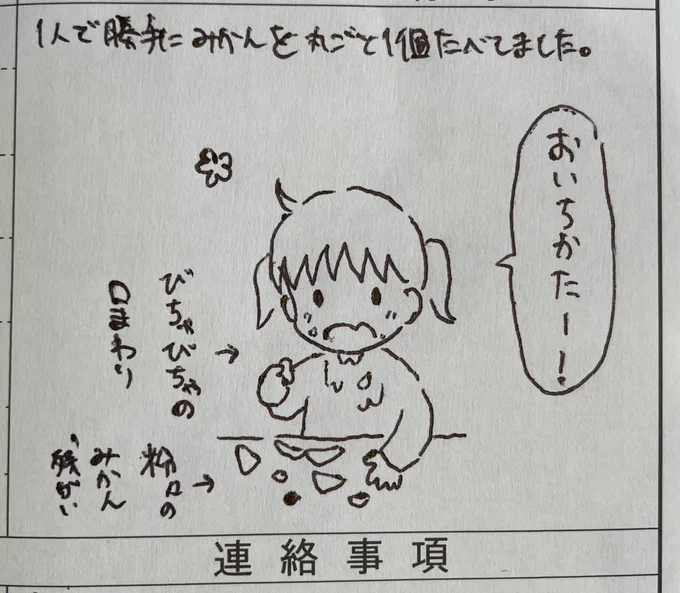 1人で勝手にみかんを丸ごと1個たべてました。
おいちかたー!
びちゃびちゃの
口まわり
粉々の
みかん
残がい
連絡事項